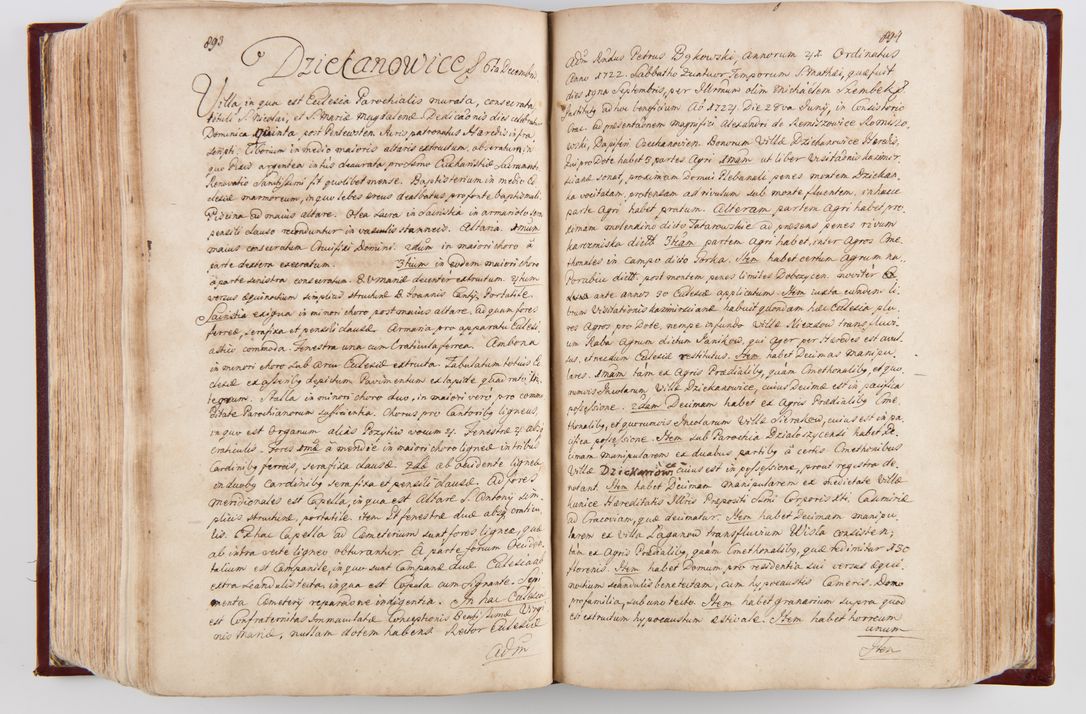 893
Dziekanowice 6ta Decembris
Villa, in qua est Ecclesia Parochialis murata, consecrata
tituli S. Nicolai, et S. Mariæ Magdalenæ Dedicaõnis dies celebratur
Dominica quinta post Pentecosten Iuris patronatus Hæredis infra
scripti. Ciborium in medio maioris altaris extructum, obseratum, in
quo Pixis argentea intus deaurata pro Sacramento
Renovatio Sanctissimi fit quolibet mense. Baptisterium in medio Ec
clesiæ marmoreum, in quo lebes æreus dealbatus, pro fonte baptismali.
Piscina ad maius altare. Olea sacra in sacristia in armariolo sera
pensili clauso reconduntur in vasculis stanneis. Altaria 1mum
maius consecratum Crucifixi Domini. 2dum in maiori choro à
parte dextera execratum. 3tium in eodem maiori choro
à parte sinistra consecratum B.V. Mariæ decenter extructum. 4tum
versus æquinoctium simplicis structuræ B. Joannis Cantij, Portatile.
Sacristia exigua in minori choro post maius altare. Ad quam fores
ferreæ, sera fixa et pensili clausæ. Armaria pro apparatu Ecclesi
astico commoda. Fenestra una cum Craticula ferrea. Ambona
in minori choro sub arcu Ecclesiæ extructa. Tabulatum totius Ec
clesiæ ex asseribus depictum Pavimentum ex lapide quadrato In
tegrum. Stalla in minori choro duo, in maiori verò pro commo
ditate Parochianorum sufficientia. Chorus pro Cantoribus ligneus,
in quo est Organum alias Pozytiw vocum 4. Fenestræ 4 absq
craticulis. Fores 1mæ à meridie in maiori choro ligneæ in tribus
Cardinibus ferreis, sera fixa clausæ. 2dæ ab occidente ligneæ
in duobus Cardinibus sera fixa et pensili clausæ. Ad fores
meridionales est Capella, in qua est Altare S. Antonij sim
plicis structuræ, portatile. item Et fenestræ duæ absq craticu
lis. Ex hac Capella ad Cæmeterium sunt fores ligneæ, quæ
ab intra vecte ligneo obturantur. A parte forium Occiden
talium est Campanile, in quo sunt Campanæ duæ. Ecclesia ab
extra scandulis tecta, in qua est Copula cum signante. Sepi
menta Cæmeterij reparaõne indigentia. In hac Ecclesia
est Confraternitas Immaculatæ Conceptionis Beatissimæ Virgi
nis Mariæ, nullam dotem habens. Rector Ecclesiæ
Adm
894
Adm Rndus Petrus Bykowski, Annorum 42 Ordinatus
Anno 1722. Sabbatho Quatuor Temporum S. Mathæi, quæ fuit
dies 19na Septembris, per Illrmum olim Michaelem Szembek
Institutus ad hoc beneficium Ao 1724. Die 28va Junij, in Consistorio
Crac. ad præsentaõnem magnifici Alexandri de Remiszowice Romiszo,
wski, Dapiferi Ciechanovien. Bonorum Villæ Dziekanowice Hæredis,
Qui pro Dote habet 3 partes Agri 1mam ut liber Visitaõnis kazimir,
siana sonat, proximam Domui Plebanali penes montem Dziekan,
ka vocitatam, protensam ad rivulum sub monte fluentem, in hacce
parte Agri habet pratum. Alteram partem Agri habet pro,
ximam molendino dicto Tatarowskie ad præsens penes rivum
karczmiska dictm. 3tiam partem Agri habet, inter Agros Cme,
thonales in Campo dicto Gorka. Item habet certum Agrum na
Porabiu dictm. post montem penes limites Dobczycen. noviter
ante annos 30 Ecclesiæ applicatum. Item iuxta eundem li,
brum Visitationis kazimirsianæ habuit quondam hæc Ecclesia plu,
res Agros pro Dote, nempe in fundo Villæ Niezdow trans fluvi,
um Raba Agrum dictum Janikow, qui Ager per Hæredes est avul
sus, et necdum Ecclesiæ restitutus. Item habet Decimas manipu,
lares. 1mam tam ex Agris Prædialibus, quàm Cmethonalibus, et quo,
rumvis Incolarum Villæ Dziekanowice, cuius Decimæ est in pacifica
possessione. 2dam Decimam habet ex Agris Prædialibus Cme,
thonalibus, et quorumvis Incolarum Villæ Sieraków, cuius est in pa,
cifica possessione. Item sub Parochia Dzialoszycensi habet De,
cimam manipularem ex duabus partibus à certis Cmethonibus
Villæ Dziekanowice cuius est in possessione, prout regestra de,
notant. Item habet Decimam manipularem ex medietate Villæ
kunice Hæreditatis Illris Præpositi Ssmi Corporis Xti Casimiriæ
ad Cracoviam, quæ decimatur. Item habet Decimam manipu,
larem ex Villa Łaganow trans fluvium Wisla consisten,
tàm ex Agris Prædialibus, quàm Cmethonalibus, quæ redimitur 130
florenis. Item habet Domum pro residentia sui versus æqui
noctium scandulis benetectam, cum hypocaustis Cameris. Domo
pro familia, sub uno tecto. Item habet granarium supra quod
est extructum hypocaustum æstivale. Item habet horreum
unum
Item